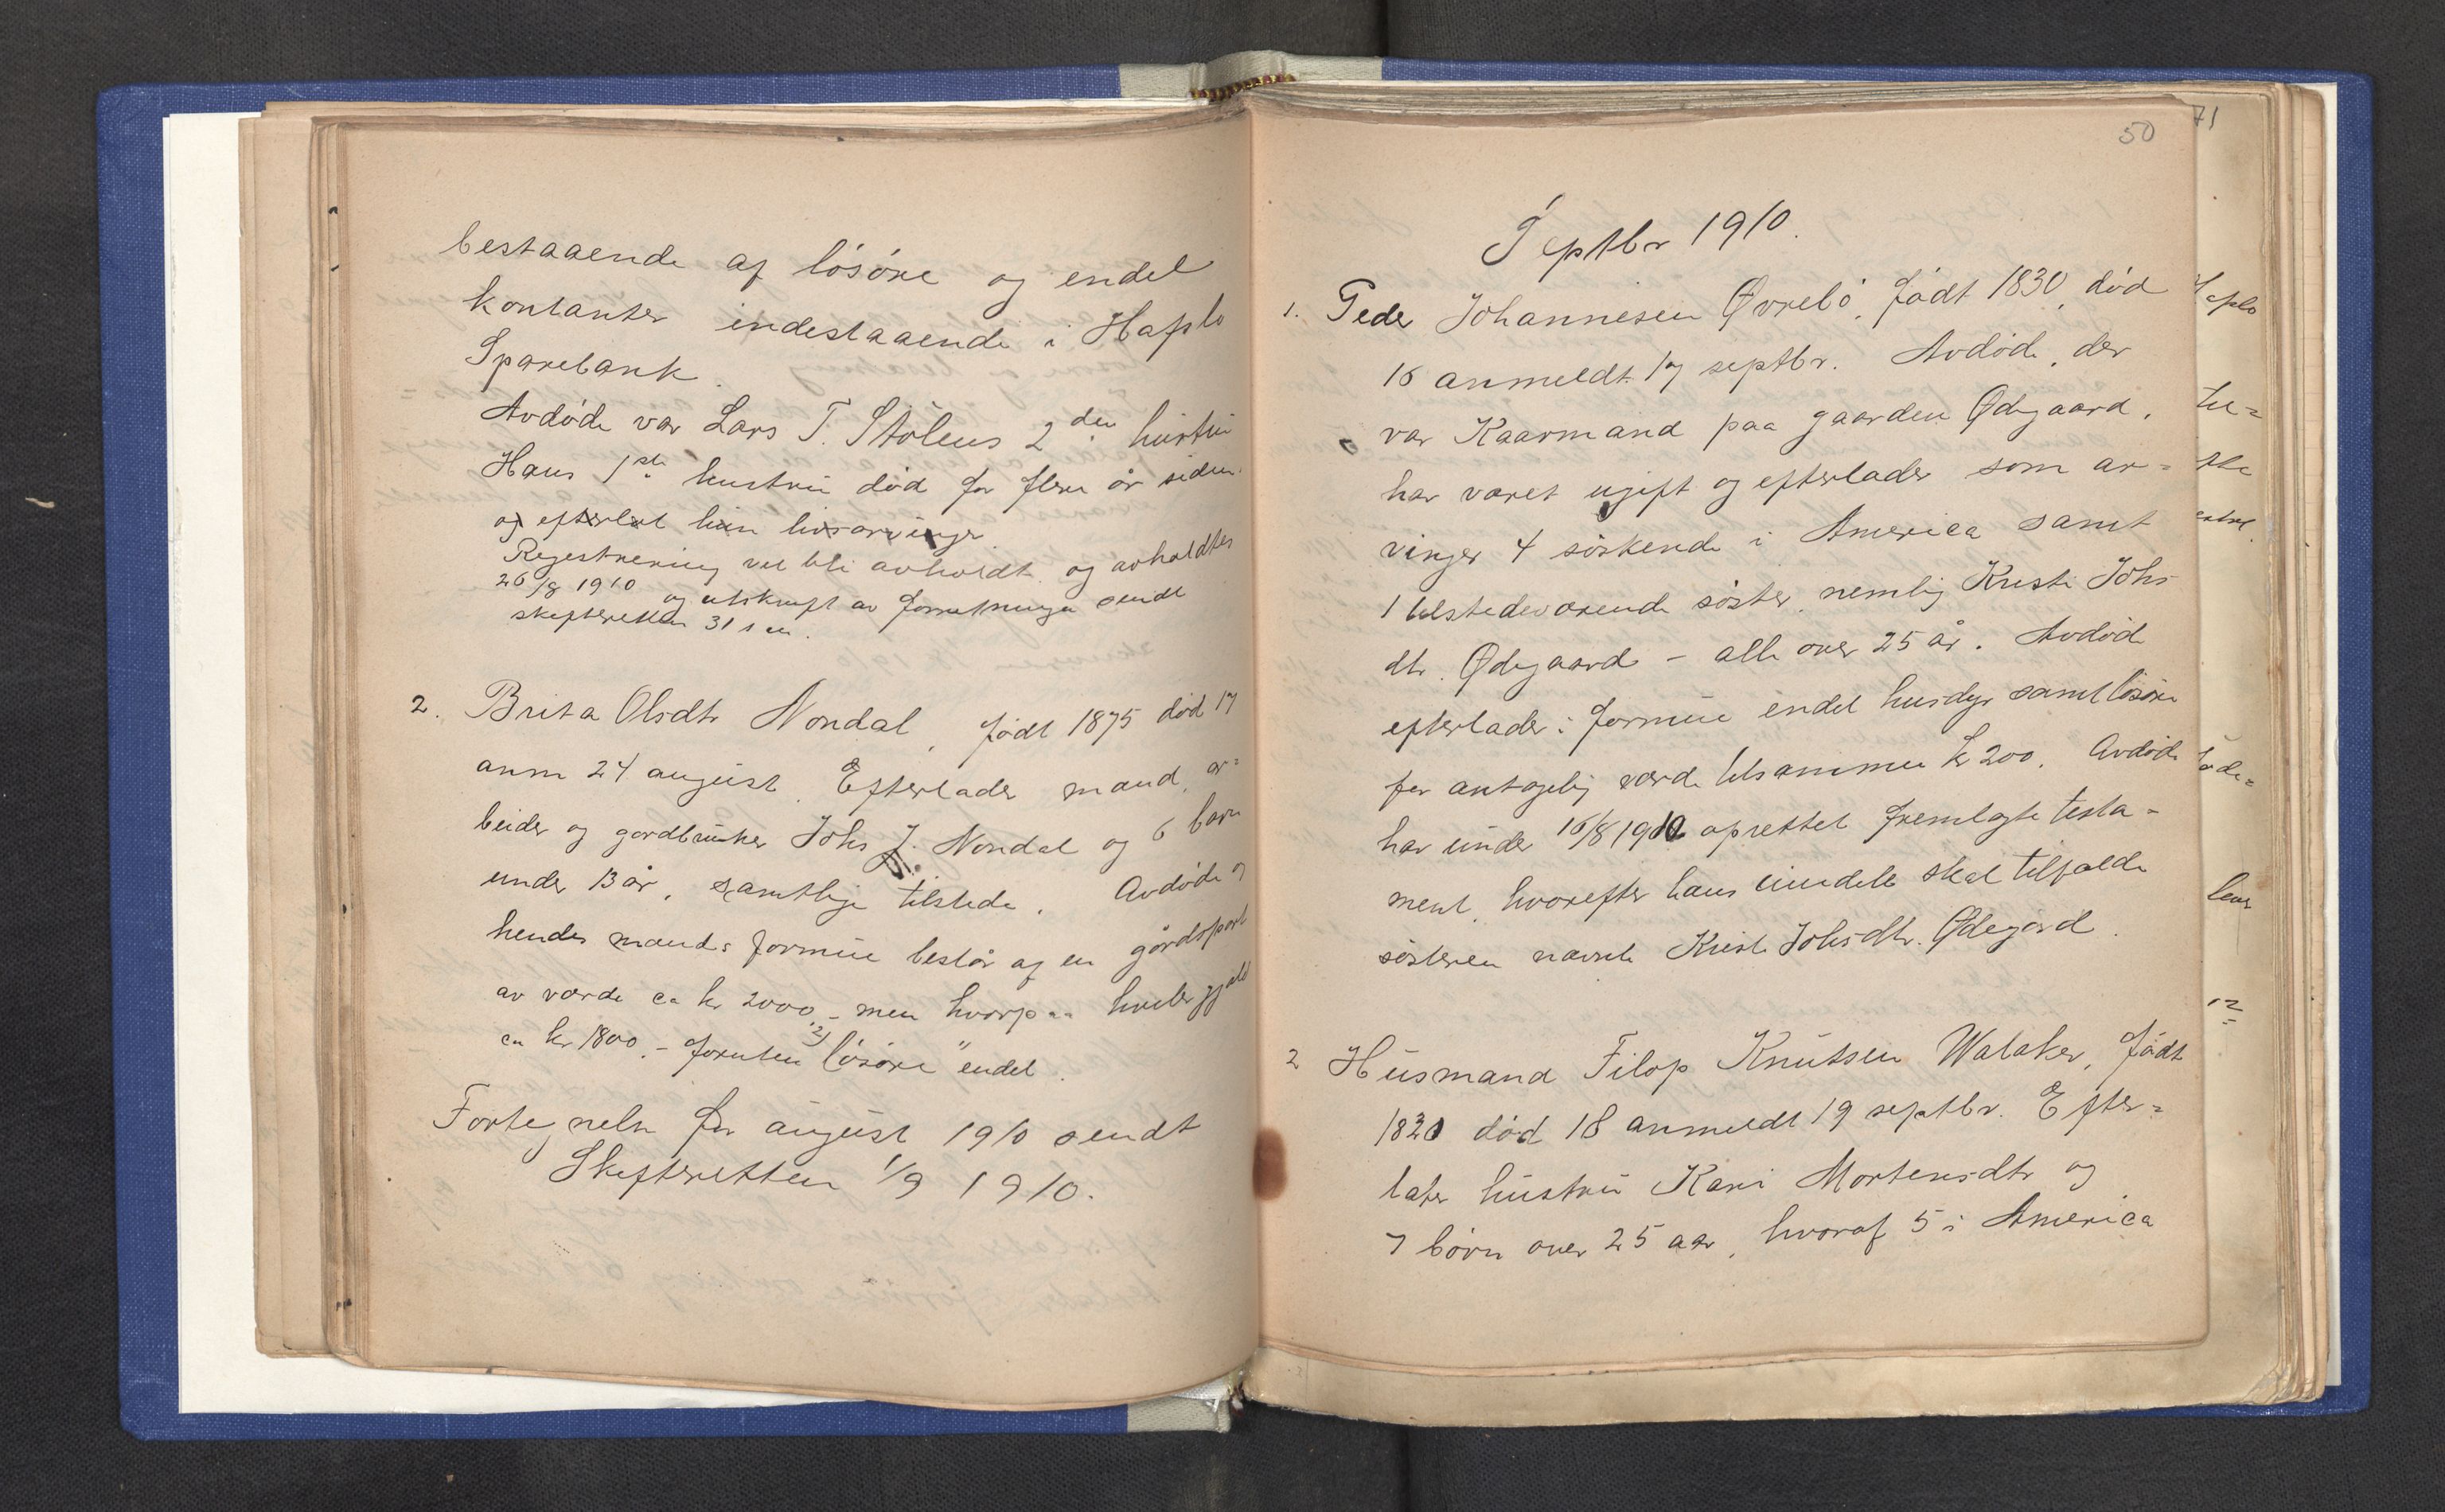 bestaaende af lösöre og endel
kontanter indestaaende i Hafslo
Sparebank.
Avdöde var Lars T. Stölens 2den hustru
Hans 1ste hustru död for flere år siden.
og efterlod hun livsarvinger
Registrering vil bli avholdt og avholdtes
26/8 1910 og utskrift av forretningen sendt
skifteretten 31 s m.
2. Brita Olsdtr Nondal, født 1875 død 17
anm 24 august. Efterlader mand, ar=
beider og gardbruker Johs J. Nondal og 6 barn
under 13 år, samtlige tilstede. Avdöde og
hendes mands formue består af en gårdspart
av værdi ca kr 2000,- men hvorpaa hviler gjæld
ca kr 1800,- foruten lösöre endel.
Fortegnelse for august 1910 sendt
Skifteretten 1/9 1910.
50
71
Septbr 1910.
1. Peder Johannesen Øvrebö, født 1830, død
16 anmeldt 17 septbr. Avdöde, der
var Kaarmand paa gaarden Ødegaard,
har været ugift og efterlader som ar=
vinger 4 söskende i America samt
1 tilstedeværende söster, nemlig Kristi Johs
dtr. Ødegaard - alle over 25 år. Avdöde
efterlader i formue endel husdyr samt lösöre
for antagelig værdi tilsammen kr 200. Avdöde
har under 16/8 1910 oprettet fremlagte testa-
ment, hvorefter hans midele skal tilfalde
sösteren nævnte Kristi Johsdtr. Ødegård.
2 Husmand Filop Knutsen Walaker, født
1830 død 18 anmeldt 19 septbr. Efter=
later hustru Kari Mortensdtr og
7 börn over 25 aar, hvoraf 5 i America